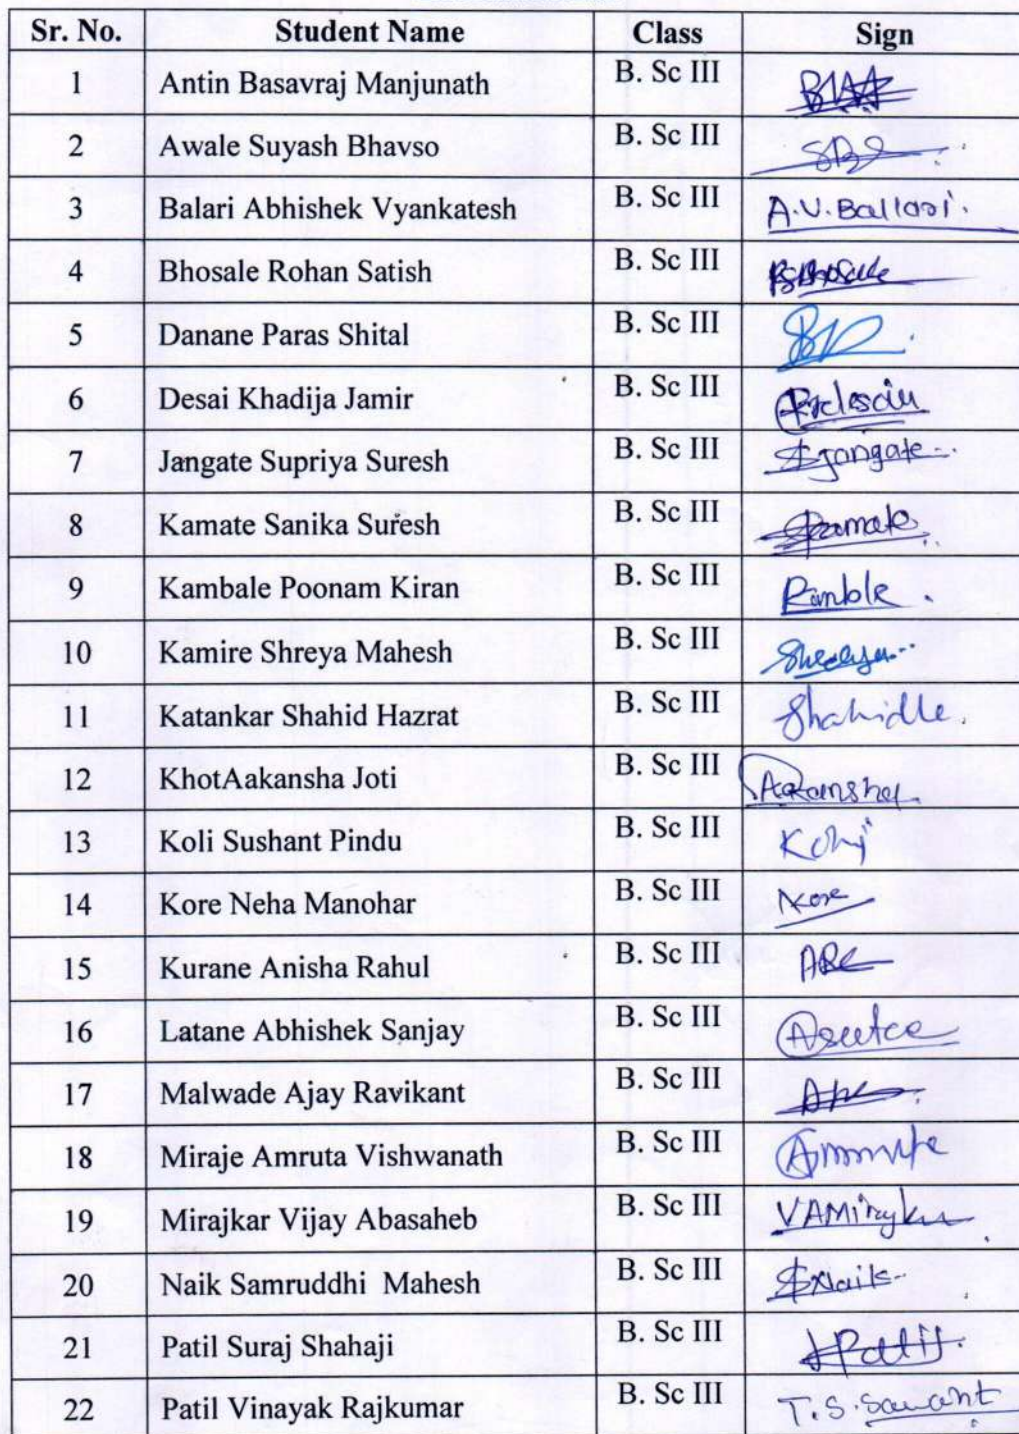 Sr. No. Student Name Class Sign
1 Antin Basavraj Manjunath B. Sc III
2 Awale Suyash Bhavso B. Sc III
3 Balari Abhishek Vyankatesh B. Sc III A.V.Ballari.
4 Bhosale Rohan Satish B. Sc III
5 Danane Paras Shital B. Sc III
6 Desai Khadija Jamir B. Sc III
7 Jangate Supriya Suresh B. Sc III SJangate
8 Kamate Sanika Suresh B. Sc III
9 Kambale Poonam Kiran B. Sc III
10 Kamire Shreya Mahesh B. Sc III
11 Katankar Shahid Hazrat B. Sc III
12 KhotAakansha Joti B. Sc III
13 Koli Sushant Pindu B. Sc III
14 Kore Neha Manohar B. Sc III Kore
15 Kurane Anisha Rahul B. Sc III
16 Latane Abhishek Sanjay B. Sc III
17 Malwade Ajay Ravikant B. Sc III
18 Miraje Amruta Vishwanath B. Sc III
19 Mirajkar Vijay Abasaheb B. Sc III
20 Naik Samruddhi Mahesh B. Sc III
21 Patil Suraj Shahaji B. Sc III
22 Patil Vinayak Rajkumar B. Sc III T.S.Sawant